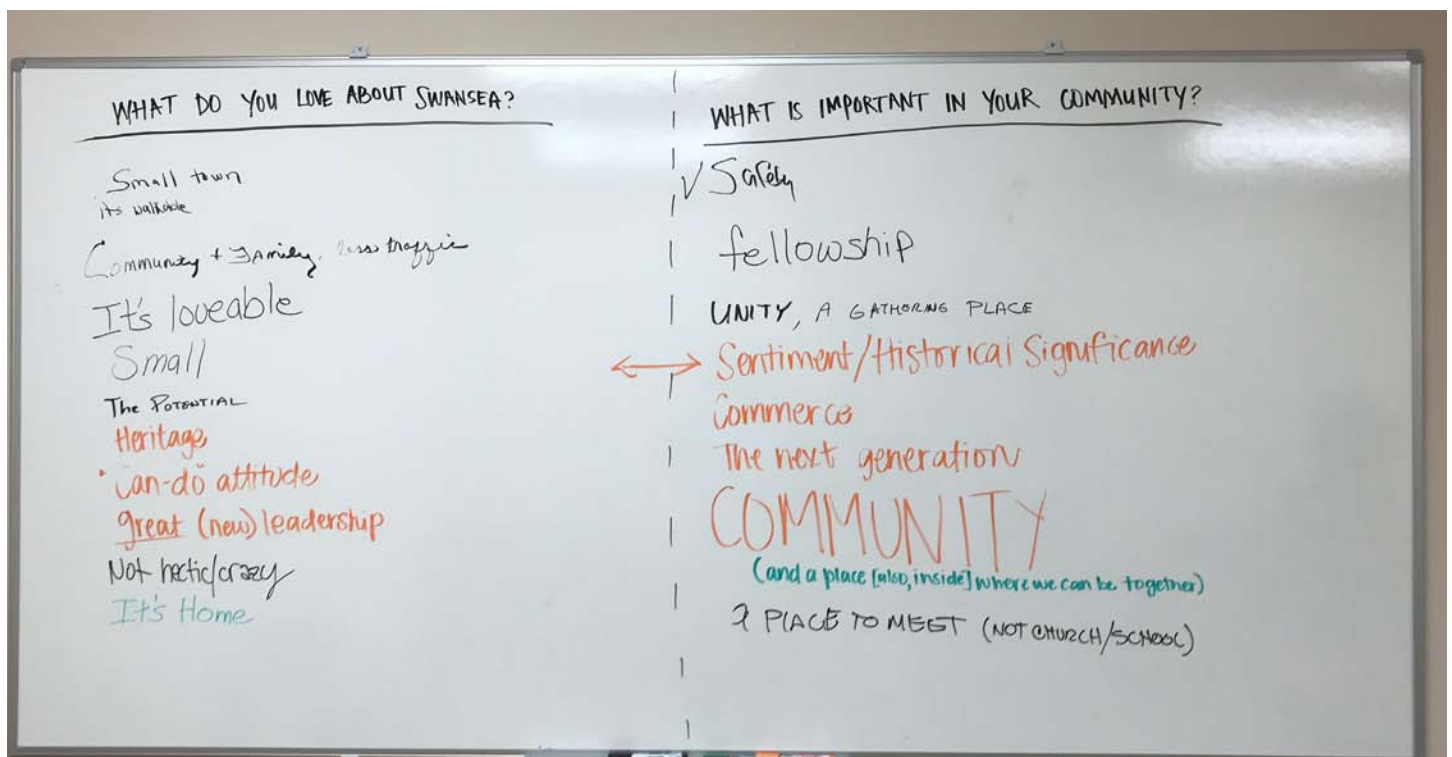 WHAT DO YOU LOVE ABOUT SWANSEA?
Small town
its walkable
Community + Family, less traffic
It's loveable
Small
The POTENTIAL
Heritage
can-do attitude
great (new) leadership
Not hectic/crazy
It's Home
WHAT IS IMPORTANT IN YOUR COMMUNITY?
✓ Safety
fellowship
UNITY, A GATHERING PLACE
Sentiment/Historical Significance
Commerce
The next generation
COMMUNITY
(and a place [also, inside] where we can be together)
A PLACE TO MEET (NOT CHURCH/SCHOOL)